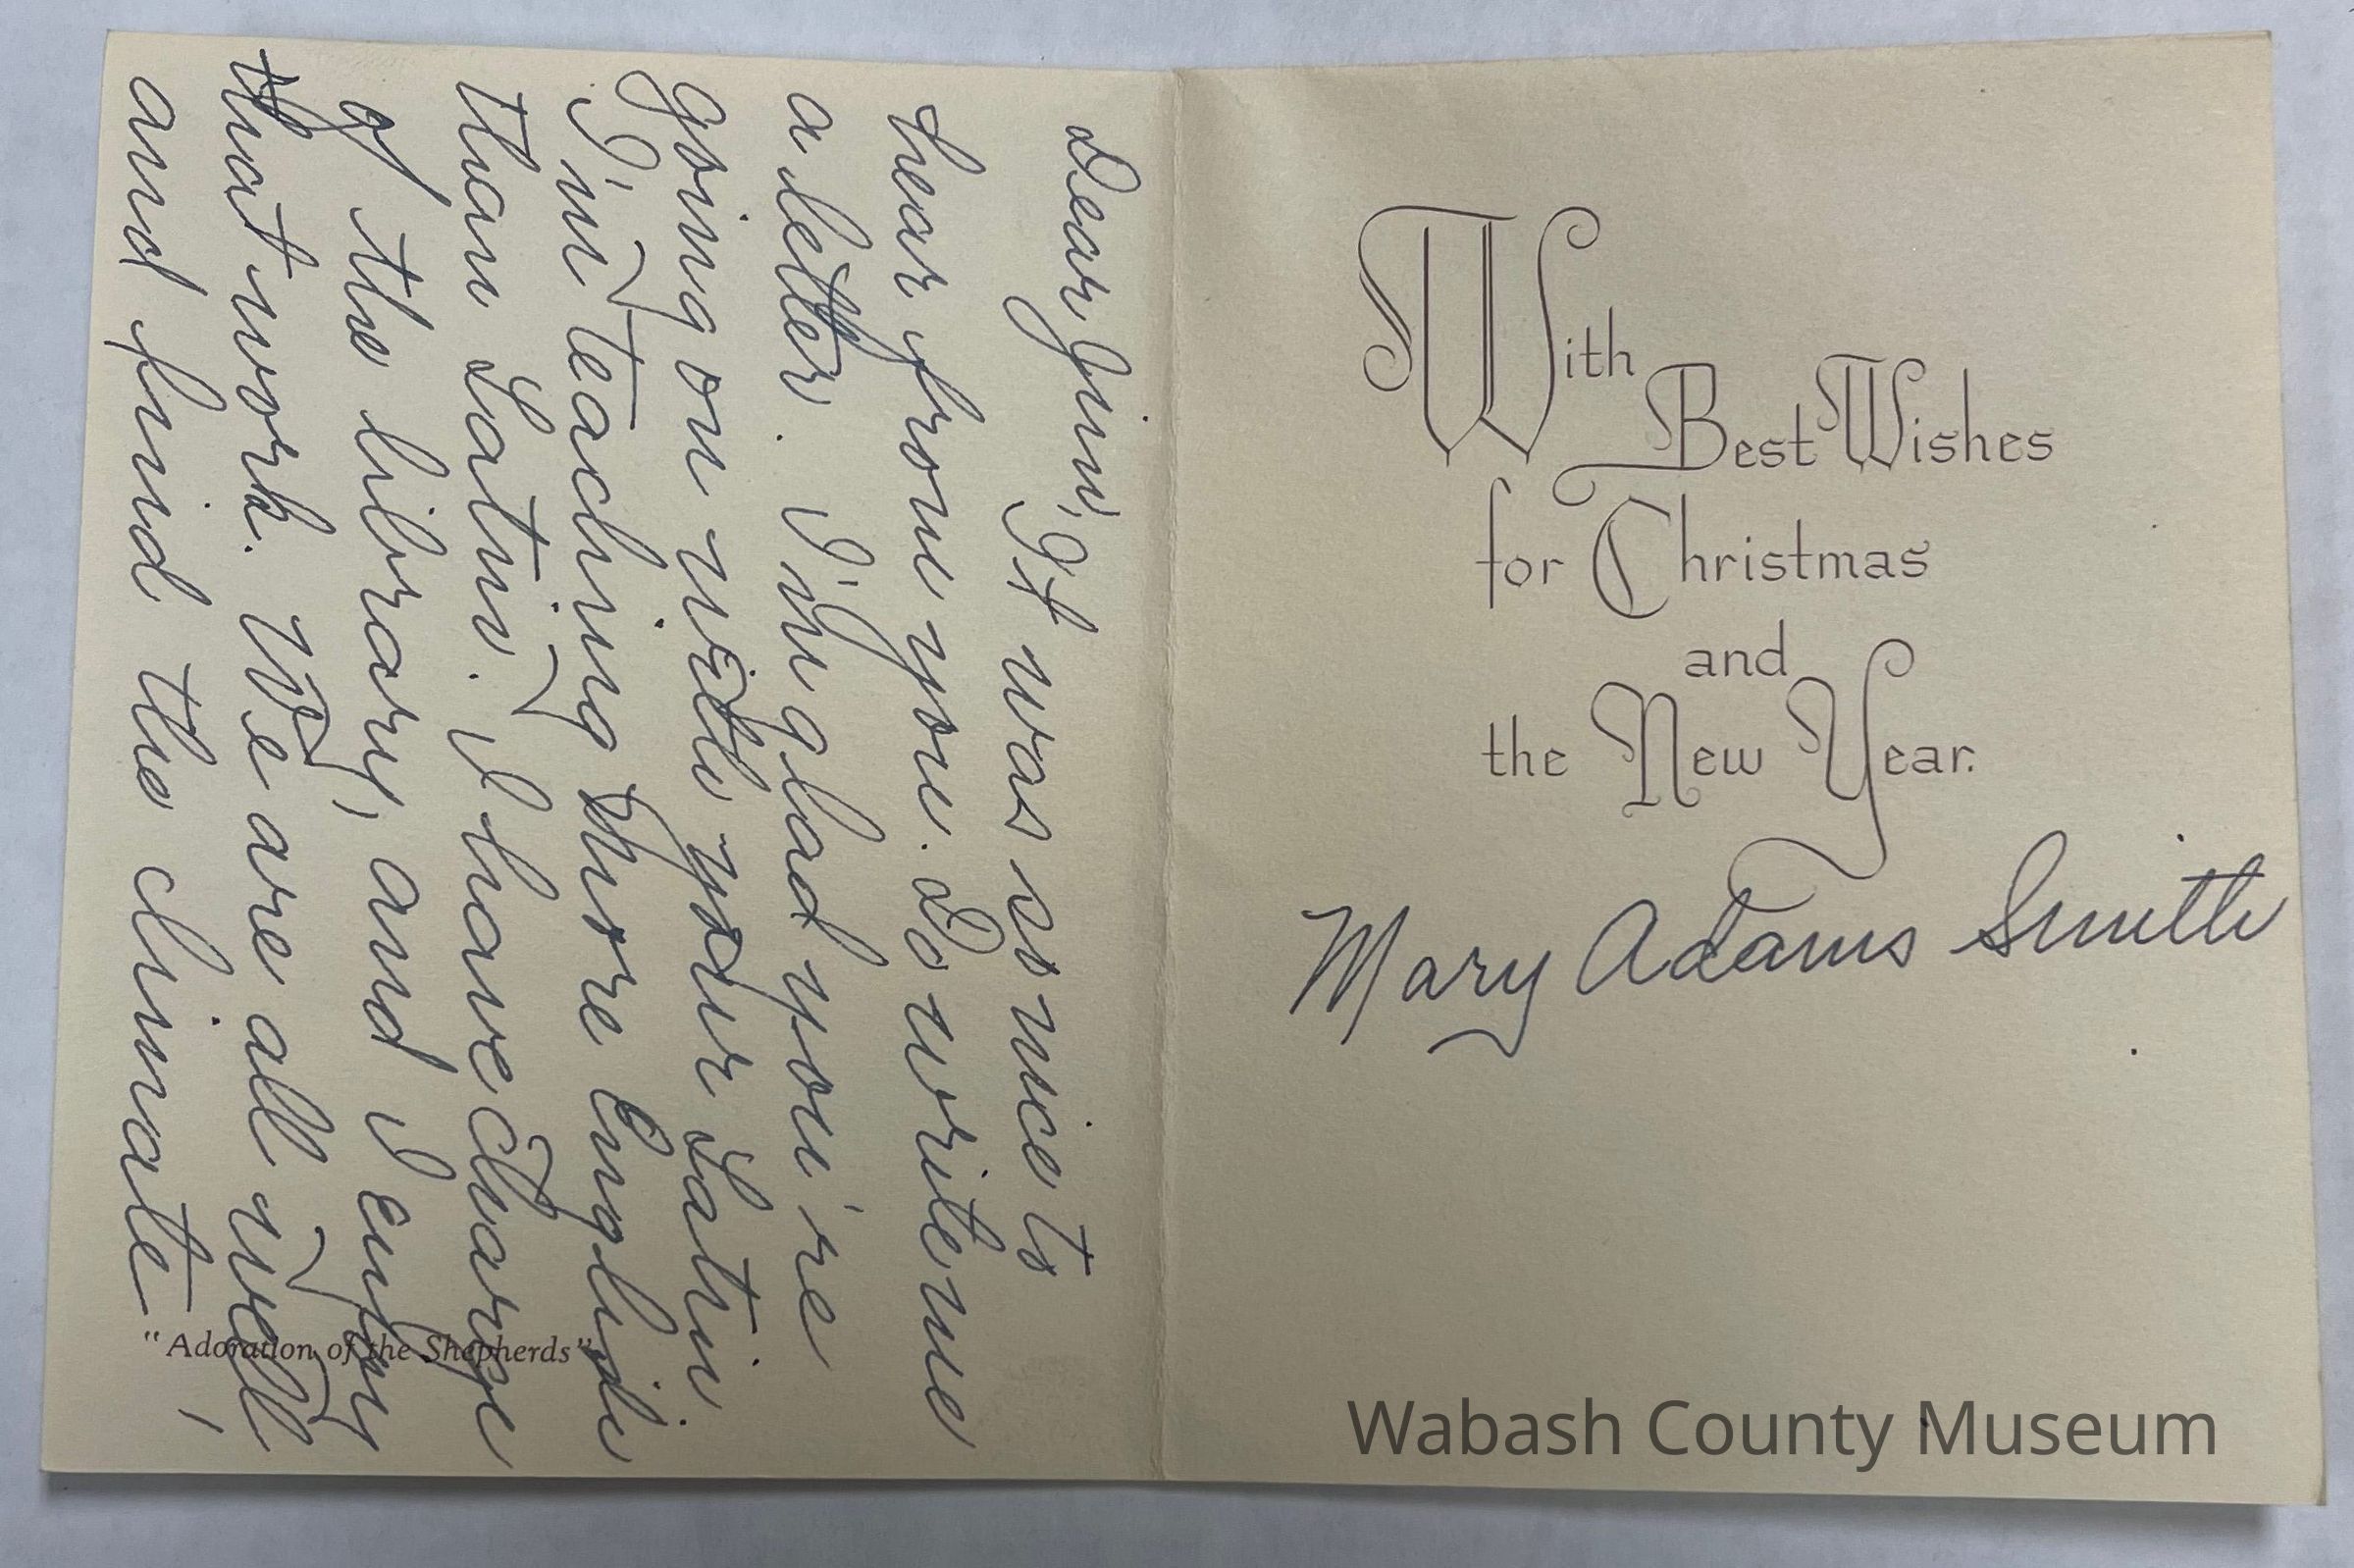 Dear Jim,
It was so nice to
hear from you. Do write me
a letter. I'm glad you're
going on with your Latin.
I'm teaching more English
than Latin. I have charge
of the library, and I enjoy
that work. We are all well
and find the climate,
"Adoration of the Shepherds"
With
Best Wishes
for Christmas
and
the New Year.
Mary Adams Smith
Wabash County Museum